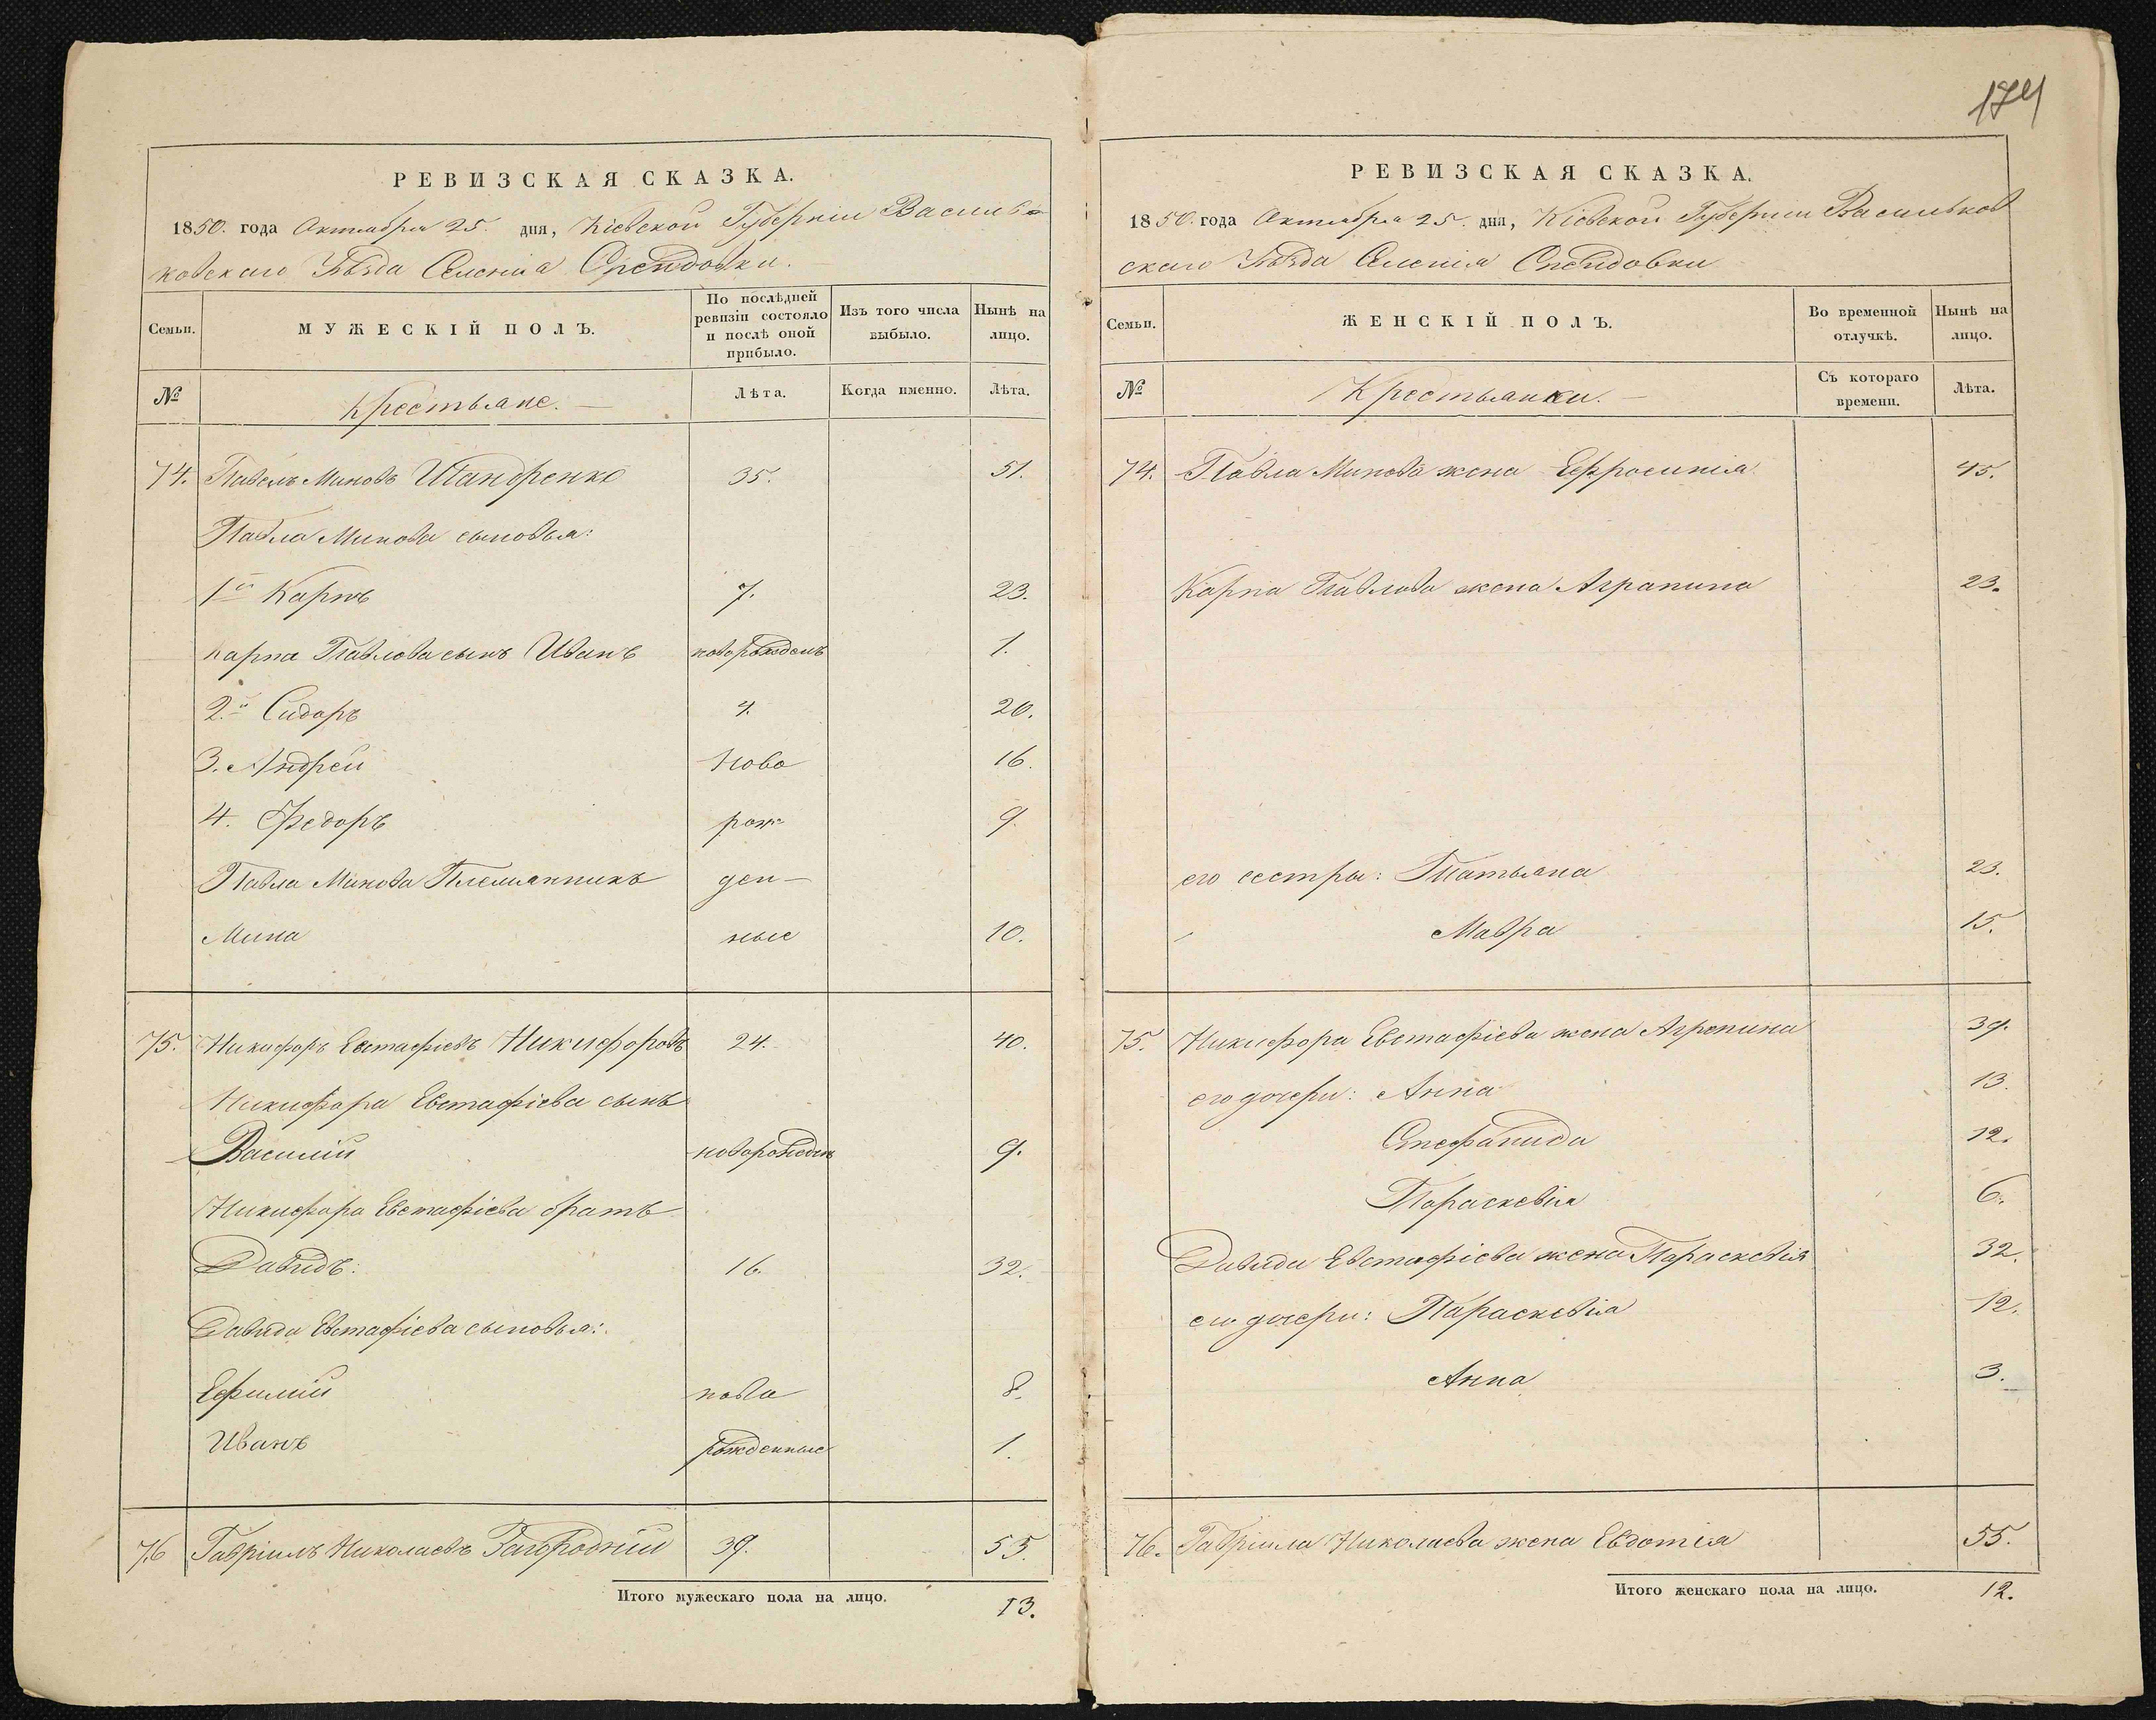 174
РЕВИЗСКАЯ СКАЗКА.
1850. года Октября 25. дня, Кіевской Губерніи Василь-
ковскаго Уѣзда Селенія Спендовки.
Семьи.
МУЖЕСКІЙ ПОЛЪ.
По послѣдней ревизіи состояло и послѣ оной прибыло.
Изъ того числа выбыло.
Нынѣ на лицо.
№
Крестьяне.
Лѣта.
Когда именно.
Лѣта.
74. Павелъ Миновъ 35. 51.
Павла Минова сыновья:
1й Карпъ 7. 23.
Карпа Павлова сынъ Иванъ новорожденъ 1.
2.й Сидоръ 4. 20.
3. Андрей Ново 16.
4. Федоръ рож- 9.
Павла Минова Племянникъ ден-
Мина ные 10.
75. Никифоръ Евстафіевъ Никифоровъ 24. 40.
Никифора Евстафіева сынъ
Василій новорожден 9.
Никифора Евстафіева братъ
Давидъ: 16. 32.
Давида Евстафіева сыновья:
Ефимій ново 8.
Иванъ рожденные 1.
76 Гавріилъ Николаевъ Загородній 39. 55.
Итого мужескаго пола на лицо. 13.
РЕВИЗСКАЯ СКАЗКА.
1850. года Октября 25. дня, Кіевской Губерніи Васильков
скаго Уѣзда Селенія Спендовки
Семьи.
ЖЕНСКІЙ ПОЛЪ.
Во временной отлучкѣ.
Нынѣ на лицо.
№
Крестьянки.
Съ котораго времени.
Лѣта.
74. Павла Минова жена Ефросинія 45.
Карпа Павлова жена Аграпина 23.
его сестры: Татьяна 23.
Мавра 15.
75. Никифора Евстафіева жена Агрепина 39.
его дочери: Анна 13.
Стефанида 12.
Параскевія 6.
Давида Евстафіева жена Параскевія 32.
его дочери: Параскевіа 12.
Анна 3.
76. Гавріила Николаева жена Евдотія 55.
Итого женскаго пола на лицо. 12.